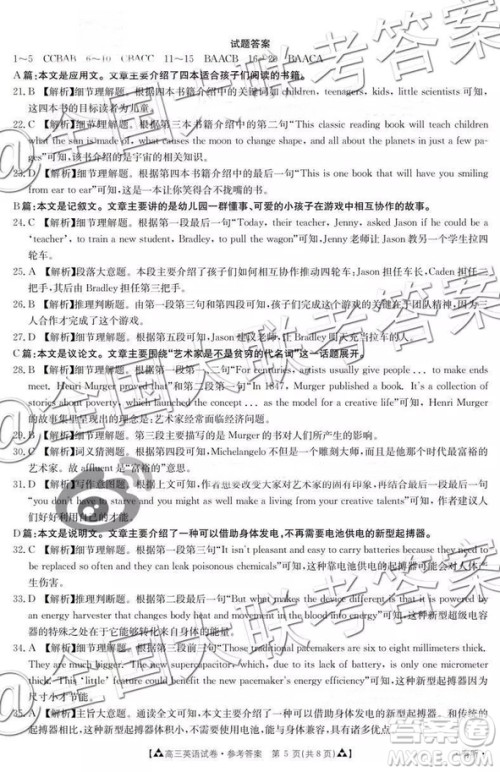 试题答案
1~5 CCBAB 6~10 CBACC 11~15 BAACB 16~20 BAACA
A篇:本文是应用文。文章主要介绍了四本适合孩子们阅读的书籍。
21. B 【解析】细节理解题。根据四本书籍介绍中的关键词如 children, teenagers, kids, little scientists 可知,这四本书的目标读者为儿童。
22. C 【解析】细节理解题。根据第三本书籍介绍中的第二句“This classic reading book will teach children what the sun is made of, what causes the moon to change shape, and all about the planets in just a few pages”可知,该书介绍的是宇宙的相关知识。
23. D 【解析】细节理解题。根据第四本书籍介绍中的最后一句“This is one book that will have you smiling from ear to ear”可知,这本书将会使你笑得合不拢嘴。
B篇:本文是记叙文。文章主要讲的是幼儿园一群懂事、可爱的小孩子在游戏中互相帮助的故事。
24. B 【解析】细节理解题。根据第一段的最后一句“Today, their teacher, Jenny, asked Jason if he could be a ‘teacher’, to train a new student, Bradley, to pull the wagon”可知,Jenny 老师让 Jason 教另一个学生拉四轮车。
25. A 【解析】段落大意题。本段主要介绍了孩子们如何相互分工来做这个游戏的:Jason 担任车长,Caden 担任二把手,其后由 Bradley 担任第三把手。
26. B 【解析】推理判断题。由第一段的第三句和第四段的最后一句可知,做这个游戏的关键在于团队精神,只有大家一起合作才能完成了这个游戏。
27. C 【解析】细节理解题。根据第五段可知,Jason 告诉老师,让 Bradley 明天充当拉车的人。
C篇:本文是议论文。文章主要围绕“艺术家是不是贫穷的代名词”这一话题展开。
28. B 【解析】细节理解题。根据第一段的第一、二句“For centuries, artists usually give people ... to make ends meet. Henri Murger proved that”和第二段的第一、二句“In 1847, Murger published a book. It's a collection of stories about poverty, which launched the ... as the model for a creative life”可知,Henri Murger 的故事集里呈现出的理念是:艺术家经常面临经济困难。
29. B 【解析】细节理解题。第三段主要描写的是 Murger 的书对人们所产生的影响。
30. C 【解析】词义猜测题。根据第四段可知,Michelangelo 不但不是一个贫穷的人,而且是当时最富裕的艺术家。故 affluent 是“富裕的”的意思。
31. A 【解析】写作意图题。根据
“you don't have to starve and you might as well make a living from your creative talents”可知,人们应好好利用自己的才能。
D篇:本文是说明文。文章主要介绍了一种可以借助身体发电,不再需要电池供电的新型起搏器。
32. C 【解析】细节理解题。根据第一段第三句“It isn't pleasant and easy to carry batteries because they need to be replaced so often and they can leak poisonous chemicals”可知,这种靠电池供电的起搏器可能会对人体产生伤害。
33. D 【解析】细节理解题。根据第二段最后一句“But what makes the device different is that it is powered by an energy harvester that can convert heat and movement in the blood into energy”可知,这种新型超级电容器的特殊之处在于收获来自身体的能量。
34. D 【解析】推理判断题。根据第三段前三句“Those traditional pacemakers are six to eight millimeters thick. They are much bigger. The new supercapacitor, which, due to its lack of battery, is only one micrometer thick. This ‘little’ feature could benefit and extend the life of an electric device”可知,这种新型起搏器因体积小才能耐用。
35. A 【解析】主旨大意题。通读全文可知,本文主要介绍了一种可以借助身体发电,不再需要电池供电的新型起搏器。
高三英语试卷·参考答案 第 5 页(共 8 页)